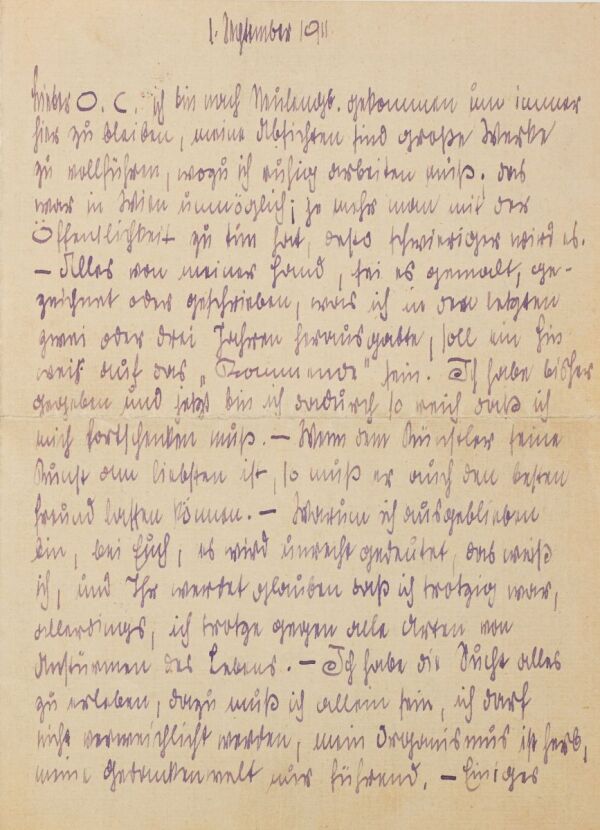 1. September 1911.
Lieber O. C. ich bin nach Neulengb. gekommen um immer
hier zu bleiben, meine Absichten sind große Werke
zu vollführen, wozu ich ruhig arbeiten muß. das
war in Wien unmöglich; je mehr man mit der
Öffentlichkeit zu tun hat, desto schwieriger wird es.
— Alles von meiner Hand, sei es gemalt, ge-
zeichnet oder geschrieben, was ich in den letzten
zwei oder drei Jahren herausgabte, soll ein Hin
weis auf das „Kommende" sein. — Ich habe bisher
gegeben und jetzt bin ich dadurch so reich daß ich
mich fortschenken muß. — Wenn dem Künstler seine
Kunst am liebsten ist, so muß er auch den besten
Freund lassen können. — Warum ich ausgeblieben
bin, bei Euch, es wird unrecht gedeutet, das weiß
ich, und Ihr werdet glauben daß ich trotzig war,
allerdings, ich trotze gegen alle Arten von
Anstürmen des Lebens. — Ich habe die Sucht alles
zu erleben, dazu muß ich allein sein, ich darf
nicht verweichlicht werden, mein Organismus ist herb,
meine Gedankenwelt nur führend. — Einiges